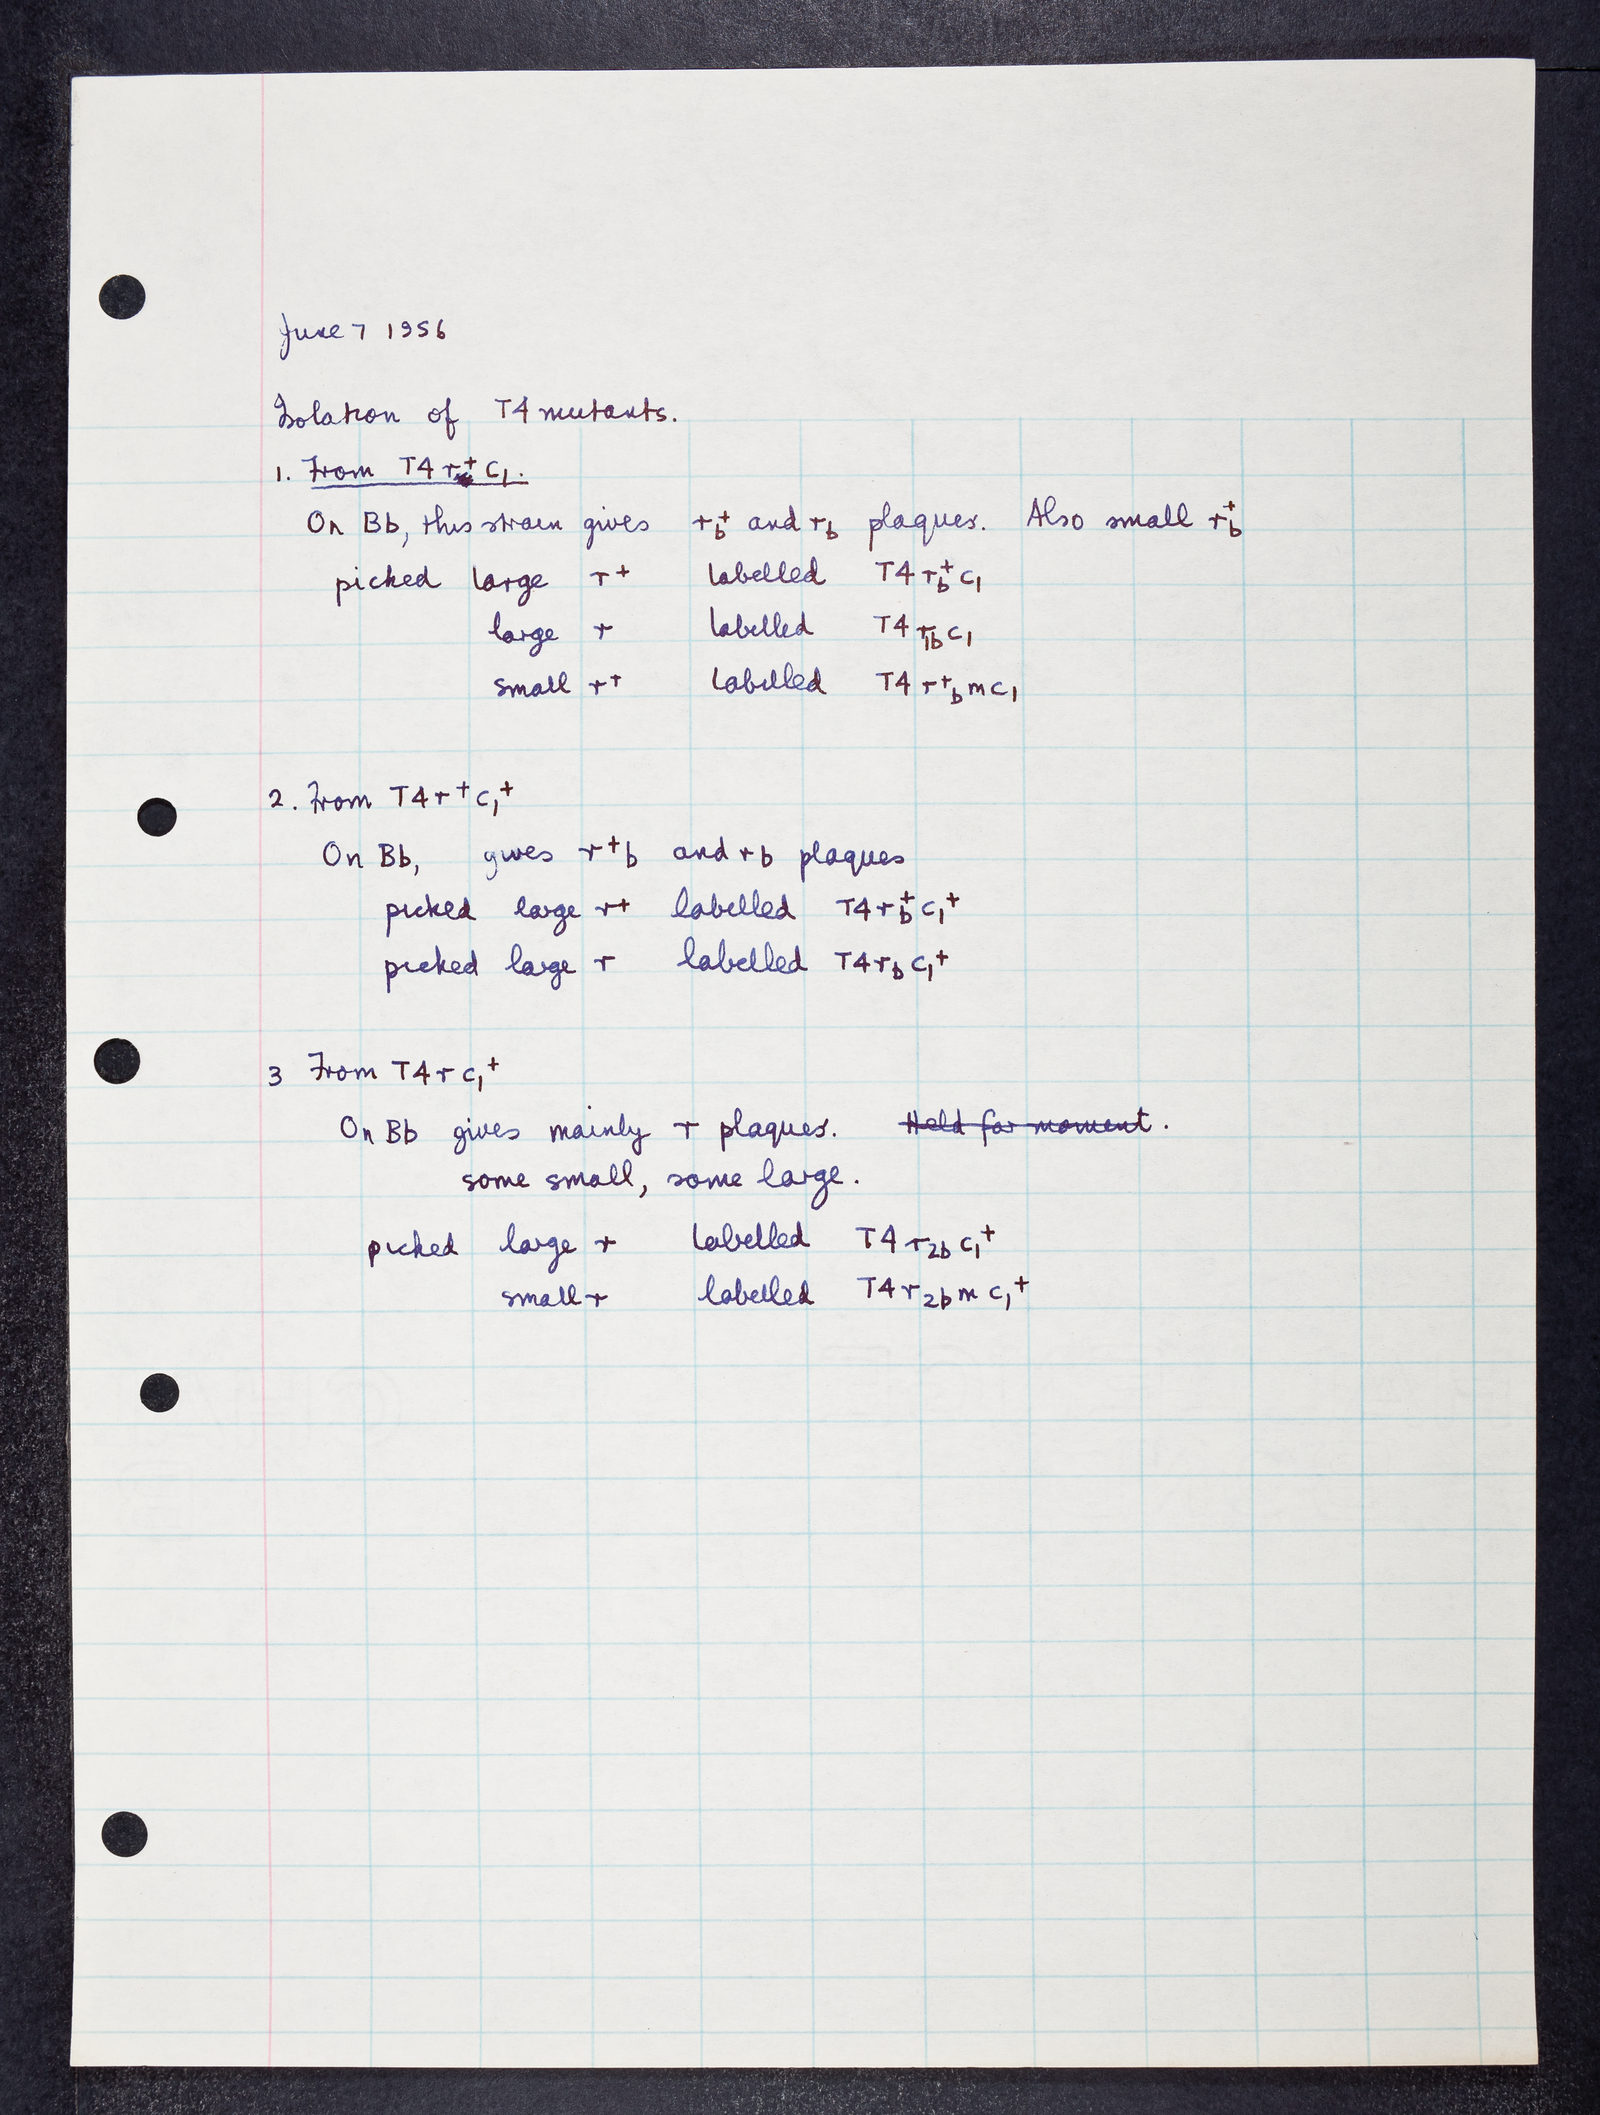 June 7 1956
Isolation of T4 mutants.
1. From T4 r⁺ c₁.
On Bb, this strain gives r_b⁺ and r_b plaques. Also small r_b⁺
picked large r⁺ labelled T4 r_b⁺ c₁
large r labelled T4 r_1b c₁
small r⁺ labelled T4 r⁺_b m c₁
2. From T4 r⁺ c₁⁺
On Bb, gives r⁺b and rb plaques
picked large r⁺ labelled T4 r_b⁺ c₁⁺
picked large r labelled T4 r_b c₁⁺
3 From T4 r c₁⁺
On Bb gives mainly r plaques. Held for moment.
some small, some large.
picked large r labelled T4 r_2b c₁⁺
small r labelled T4 r_2b m c₁⁺